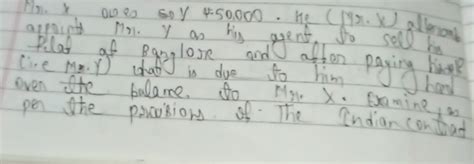 Mr. X owes soy ₹50,000. He (Mr. X) afterwards
appoints Mr. Y as his agent to sell his
Flat at Banglore and after paying himself
(i.e Mr. Y) what is due to him hand
over the balance to Mr. X. Examine, as
per the provisions of The Indian contract